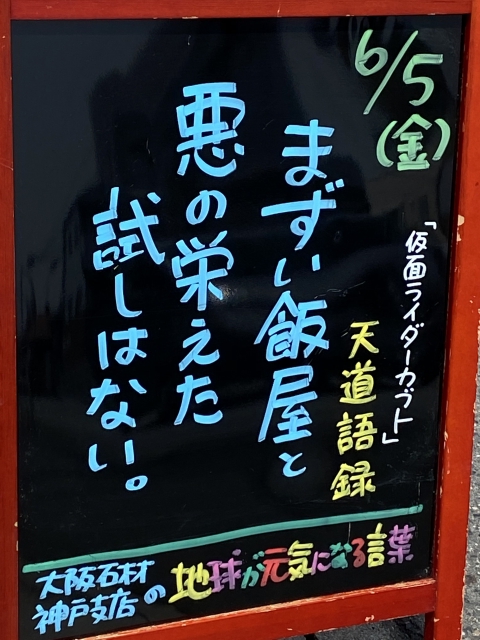 6/5
(金)
「仮面ライダーカブト」
天道語録
まずい飯屋と
悪の栄えた
試しはない。
大阪石材
神戸支店の
地球が元気になる言葉